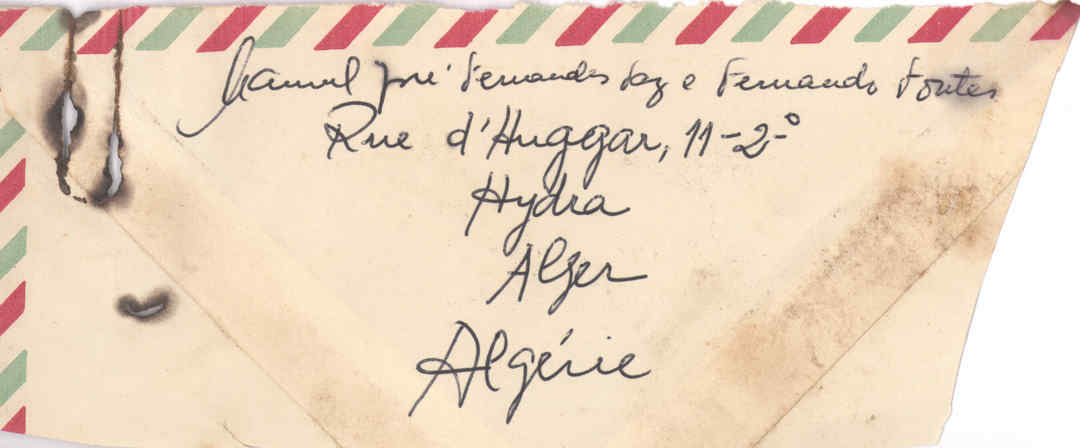 Manuel José Fernandes Vaz e Fernando Fontes
Rue d'Huggar, 11-2º
Hydra
Alger
Algérie